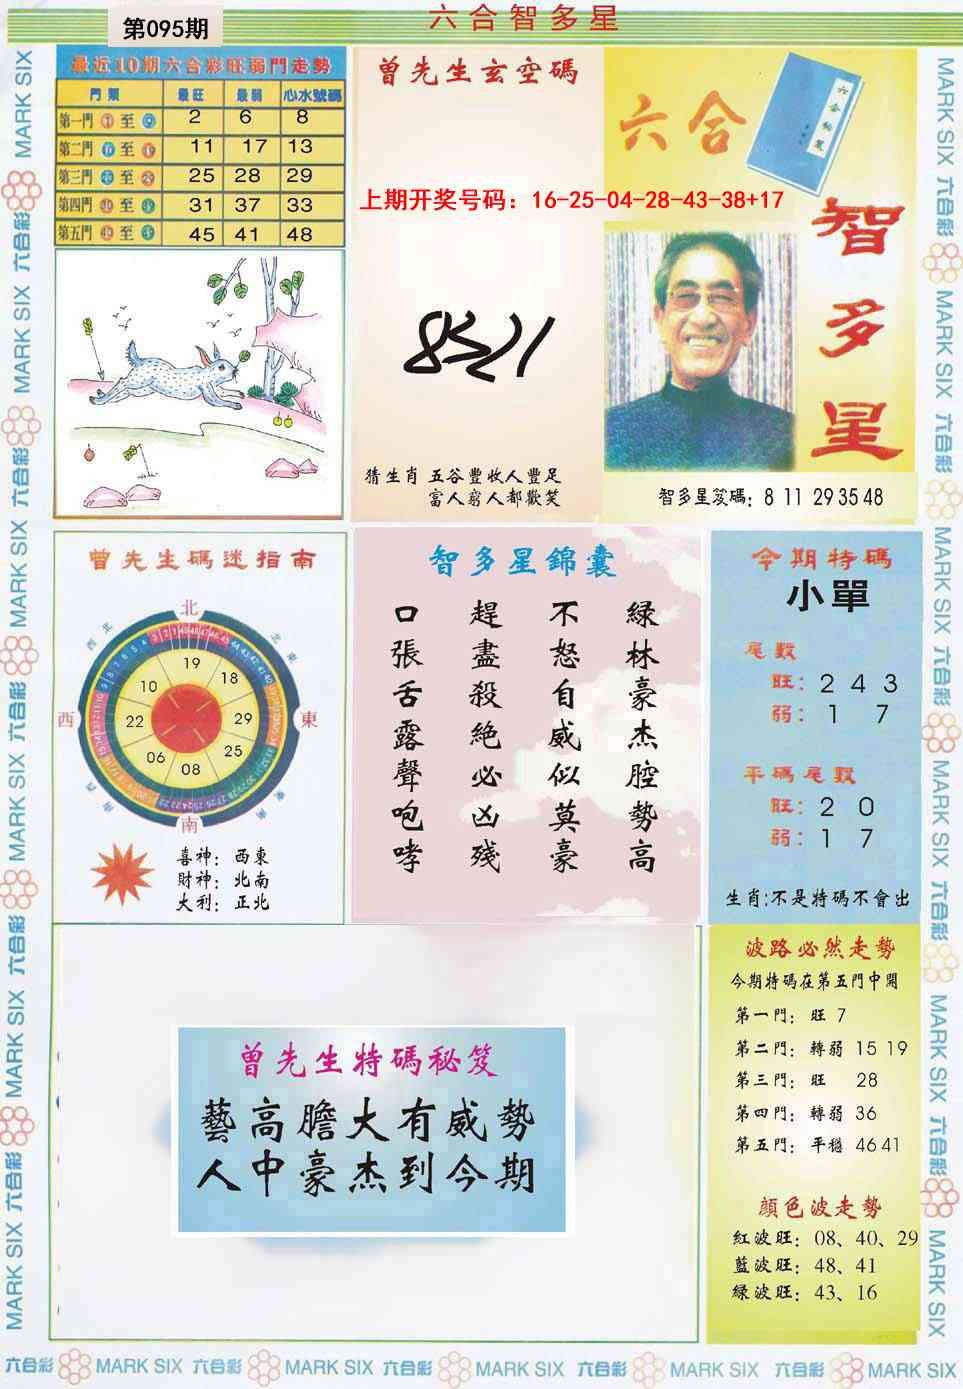 六合智多星
第095期
最近10期六合彩旺弱門走勢
門類 最旺 最弱 心水號碼
第一門 至 2 6 8
第二門 至 11 17 13
第三門 至 25 28 29
第四門 至 31 37 33
第五門 至 45 41 48
曾先生玄空碼
上期开奖号码：16-25-04-28-43-38+17
猜生肖 五谷豐收人豐足
富人窮人都歡笑
六合
智多星
智多星笈碼：8 11 29 35 48
曾先生碼迷指南
北
西北
東北
西
東
南
19
18
29
25
08
06
22
10
喜神：西東
財神：北南
大利：正北
智多星錦囊
綠林豪杰腔勢高
不怒自威似莫豪
趕盡殺絕必凶殘
口張舌露聲咆哮
今期特碼
小單
尾數
旺：2 4 3
弱：1 7
平碼尾數
旺：2 0
弱：1 7
生肖:不是特碼不會出
曾先生特碼秘笈
藝高膽大有威勢
人中豪杰到今期
波路必然走勢
今期特碼在第五門中開
第一門：旺 7
第二門：轉弱 15 19
第三門：旺 28
第四門：轉弱 36
第五門：平穩 46 41
顔色波走勢
紅波旺：08、40、29
藍波旺：48、41
綠波旺：43、16
六合彩 MARK SIX 六合彩 MARK SIX 六合彩 MARK SIX 六合彩 MARK SIX 六合彩 MARK SIX